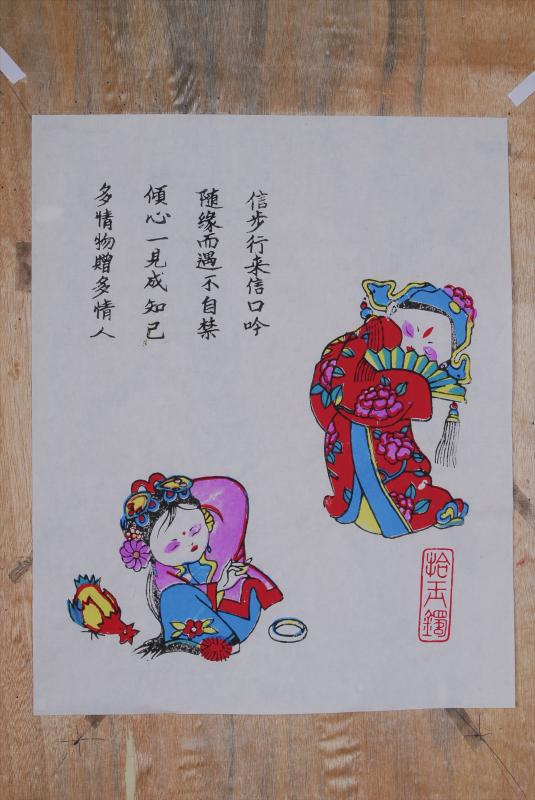 信步行来信口吟
随缘而遇不自禁
倾心一見成知已
多情物赠多情人
拾玉镯